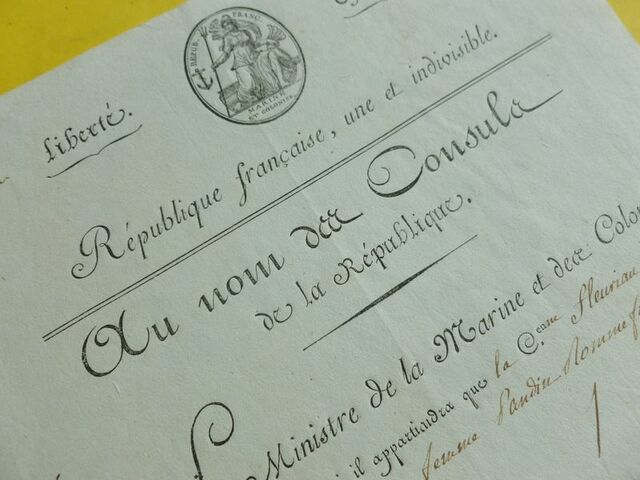 RÉPUB. FRANÇ.
MARINE
ET COLONIES
Liberté.
République française, une et indivisible.
Au nom des Consuls
de la République.
Ministre de la Marine et des Colon
il appartiendra que la C.enne fleuriau
femme Pandin Romme